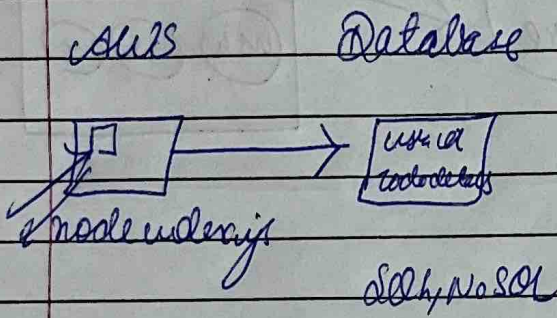 AWS Database
user
tododetails
node index.js
SQL, NoSQL